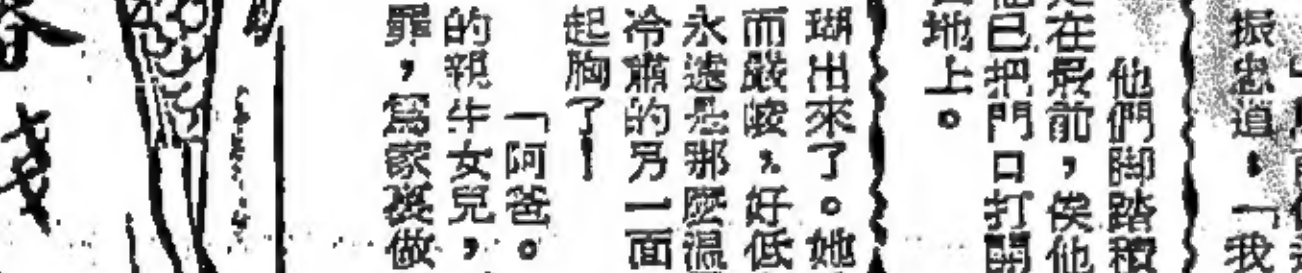 振忠道，「我
他們脚踏積
在最前，俟他
已把門口打開
地上。
瑚出來了。她
而嚴峻，好低
永遠是那麼溫
冷肅的另一面
起胸了！
「阿爸。
的親生女兒，
罪，爲家裏做